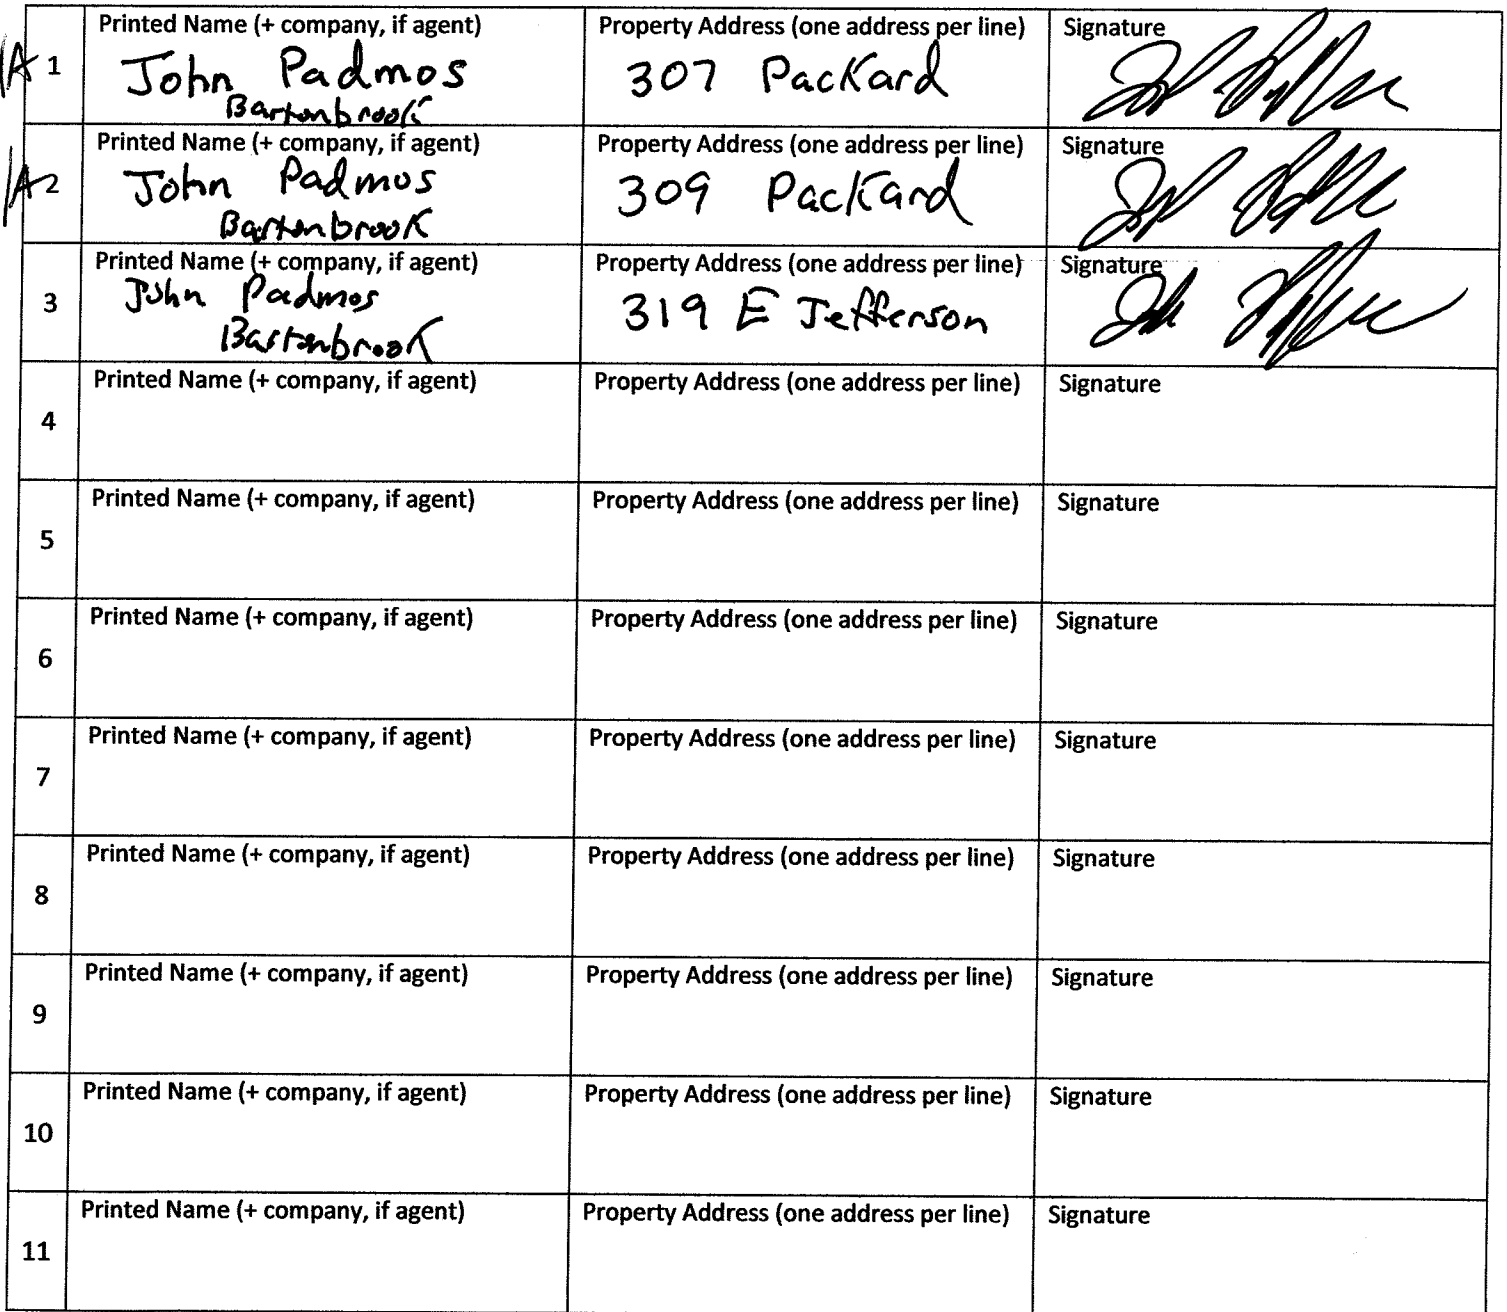 Printed Name (+ company, if agent) Property Address (one address per line) Signature
1 John Padmos 307 Packard
Bartonbrook
Printed Name (+ company, if agent) Property Address (one address per line) Signature
2 John Padmos 309 Packard
Bartonbrook
Printed Name (+ company, if agent) Property Address (one address per line) Signature
3 John Padmos 319 E Jefferson
Bartonbrook
Printed Name (+ company, if agent) Property Address (one address per line) Signature
4
Printed Name (+ company, if agent) Property Address (one address per line) Signature
5
Printed Name (+ company, if agent) Property Address (one address per line) Signature
6
Printed Name (+ company, if agent) Property Address (one address per line) Signature
7
Printed Name (+ company, if agent) Property Address (one address per line) Signature
8
Printed Name (+ company, if agent) Property Address (one address per line) Signature
9
Printed Name (+ company, if agent) Property Address (one address per line) Signature
10
Printed Name (+ company, if agent) Property Address (one address per line) Signature
11